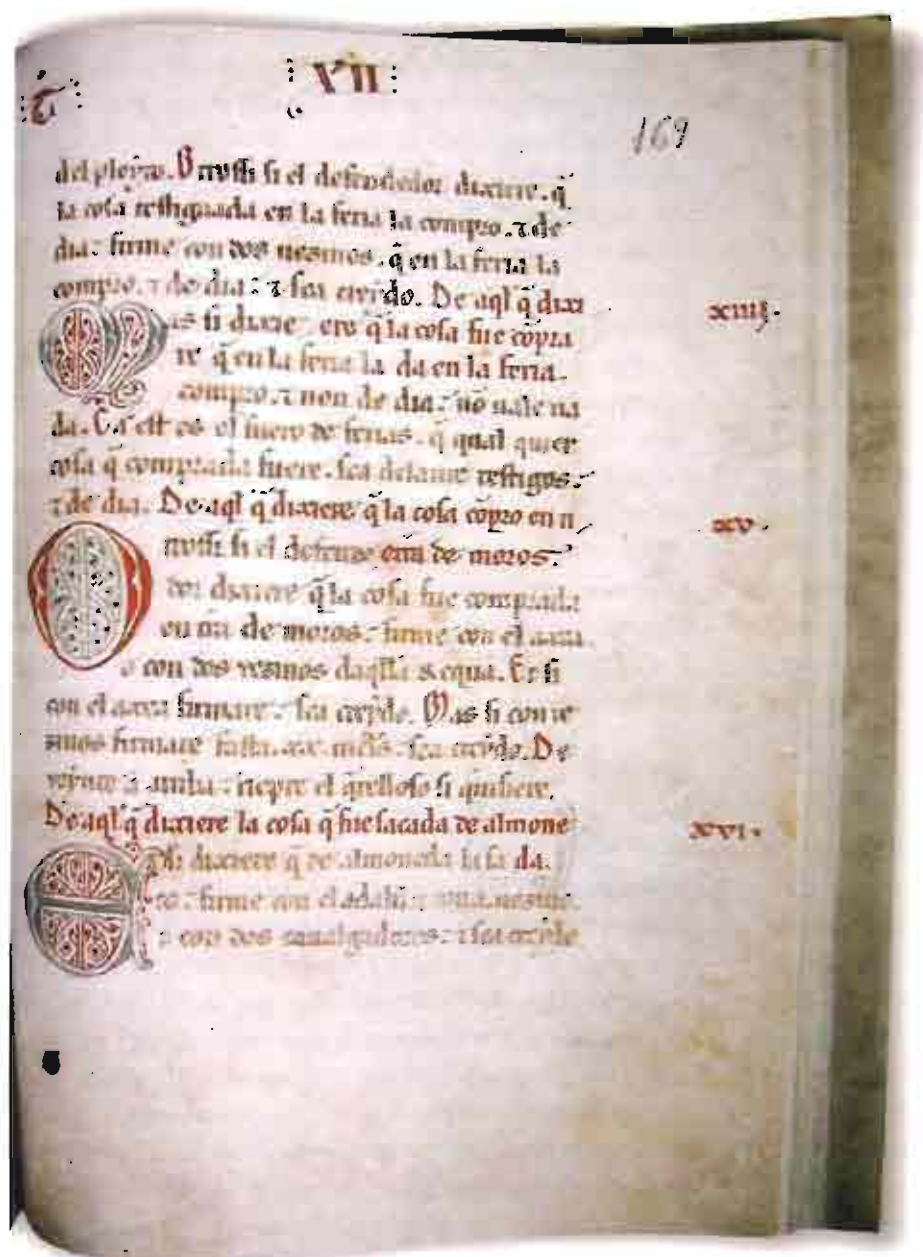 XVII
169
del pleyto. Otrossi si el defendedor dixiere. q̃
la cosa testiguada en la feria la compro. ⁊ de
dia: firme con dos uezinos. q̃ en la feria la
compro. ⁊ de dia: ⁊ sea creydo. De aq̃l q̃ dixi
Mas si dixie ere q̃ la cosa fue cõpra
re q̃ en la feria la da en la feria.
compro. ⁊ non de dia: nõ uale na
da. Ca est es el fuero de ferias. q̃ qual quier
cosa q̃ comprada fuere. sea delante testigos.
⁊ de dia. De aq̃l q̃ dixiere q̃ la cosa cõpro en ti
xiiij.
xv.
Otrossi si el defende erra de moros.
dor dixiere q̃ la cosa fue comprada
en tr̃a de moros: firme con el
o con dos vezinos daq̃lla Et si
con el firmare: sea creydo. Mas si con ve
zinos firmare sea creydo. De
el q̃relloso si quisiere.
De aq̃l q̃ dixiere la cosa q̃ fue sacada de almone
xvi.
E si dixiere q̃ de almoneda la sa da.
co: firme con el adalil
o con dos caualgadores: ⁊ sea creydo